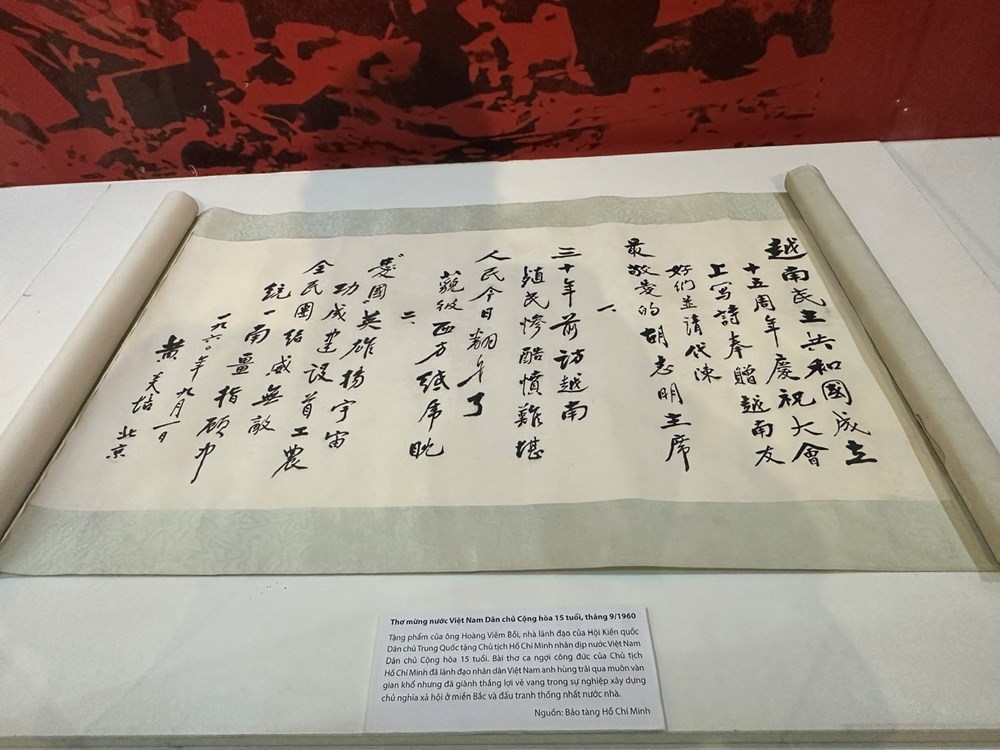 越南民主共和國成立
十五周年慶祝大會
上写詩奉贈越南友
好们並請代陳
最敬爱的胡志明主席
一、
三十年前訪越南
殖民惨酷憤難堪
人民今日翻身了
藐彼西方紙虎眈
二、
愛國英雄揚宇宙
功成建设首工農
全民團结威無敵
统一南疆指顾中
一九六〇年九月一日
黄炎培 北京
Thơ mừng nước Việt Nam Dân chủ Cộng hòa 15 tuổi, tháng 9/1960
Tặng phẩm của ông Hoàng Viêm Bồi, nhà lãnh đạo của Hội Kiến quốc
Dân chủ Trung Quốc tặng Chủ tịch Hồ Chí Minh nhân dịp nước Việt Nam
Dân chủ Cộng hòa 15 tuổi. Bài thơ ca ngợi công đức của Chủ tịch
Hồ Chí Minh đã lãnh đạo nhân dân Việt Nam anh hùng trải qua muôn vàn
gian khổ nhưng đã giành thắng lợi vẻ vang trong sự nghiệp xây dựng
chủ nghĩa xã hội ở miền Bắc và đấu tranh thống nhất nước nhà.
Nguồn: Bảo tàng Hồ Chí Minh